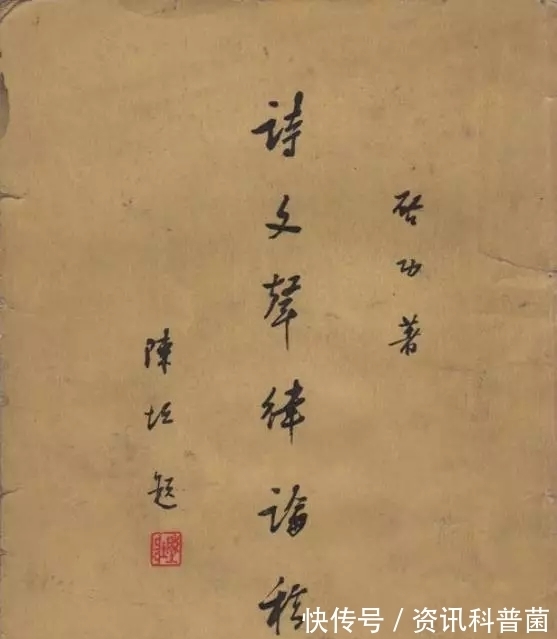 启功著
詩文聲律論稿
陳垣题
快传号 / 资讯科普菌